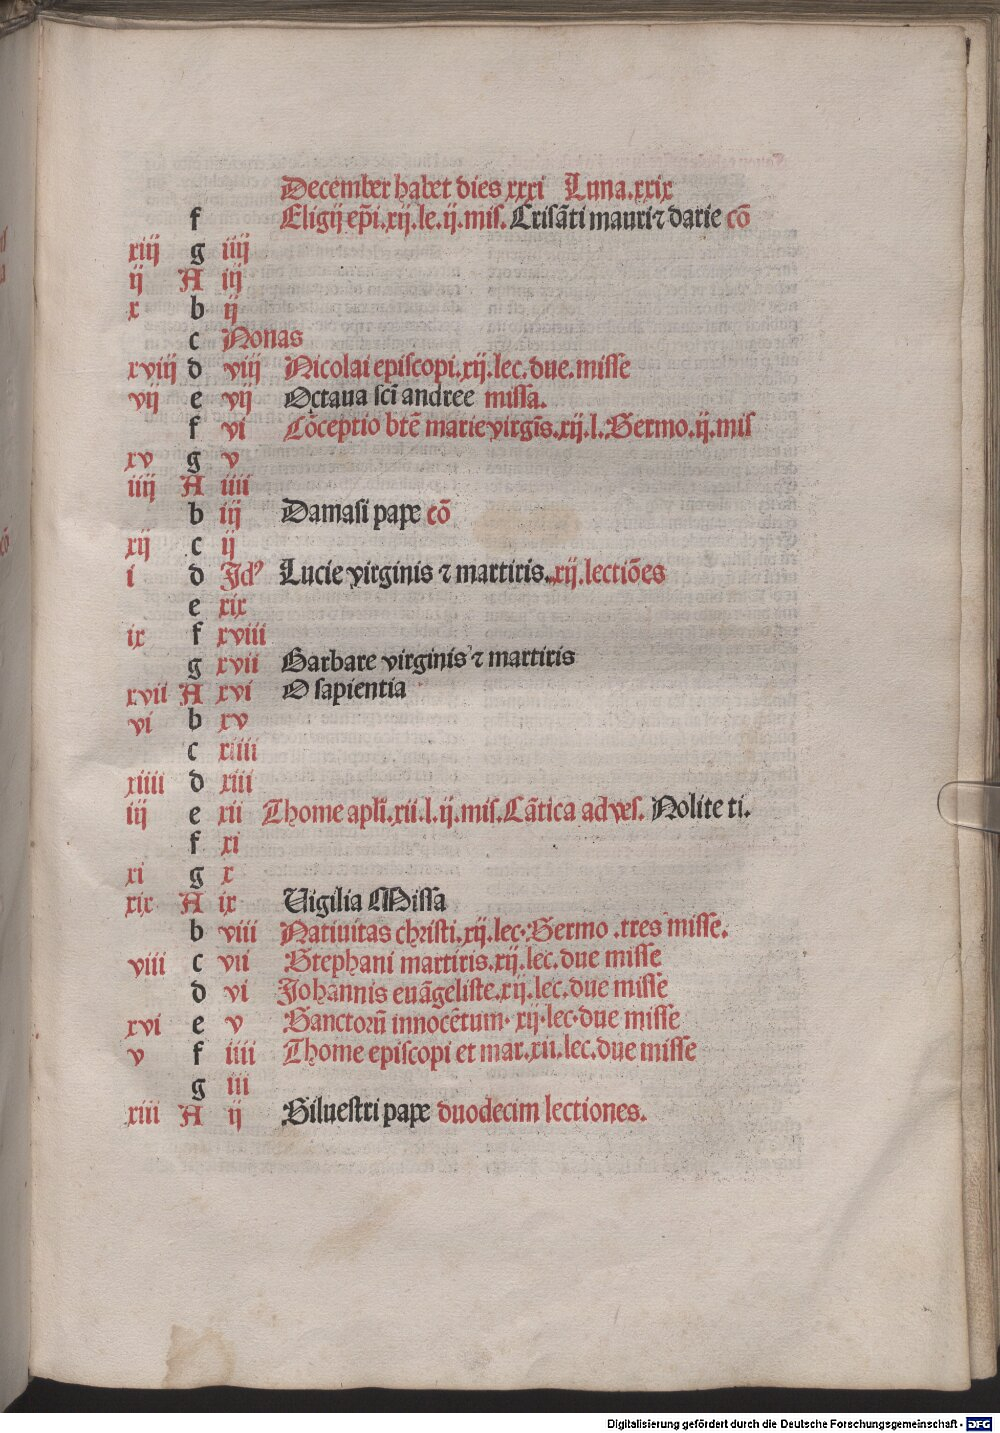 December habet dies xxxi Luna.xxix
f Eligij ep̄i.xij.le.ij.mis. Crisāti mauri ⁊ darie cō
xiij g iiij
ij A iij
x b ij
c Nonas
xviij d viij Nicolai episcopi.xij.lec.due.misse
vij e vij Octaua sc̄i andree missa.
f vi Cōceptio btē marie virgīs.xij.l.Sermo.ij.mis
xv g v
iiij A iiii
b iij Damasi pape cō
xij c ij
i d Idꝰ Lucie virginis ⁊ martiris.xij.lectiōes
e xix
ix f xviii
g xvii Barbare virginis ⁊ martiris
xvii A xvi O sapientia
vi b xv
c xiiii
xiiii d xiii
iij e xii Thome apl̄i.xii.l.ij.mis.Cātica ad vēs. Nolite ti.
f xi
xi g x
xix A ix Uigilia Missa
b viii Natiuitas christi.xij.lec.Sermo.tres misse.
viii c vii Stephani martiris.xij.lec.due misse
d vi Johannis euāgeliste.xij.lec.due misse
xvi e v Sanctorū innocētum.xij.lec.due misse
v f iiii Thome episcopi et mar.xii.lec.due misse
g iii
xiii A ij Siluestri pape duodecim lectiones.
Digitalisierung gefördert durch die Deutsche Forschungsgemeinschaft - DFG